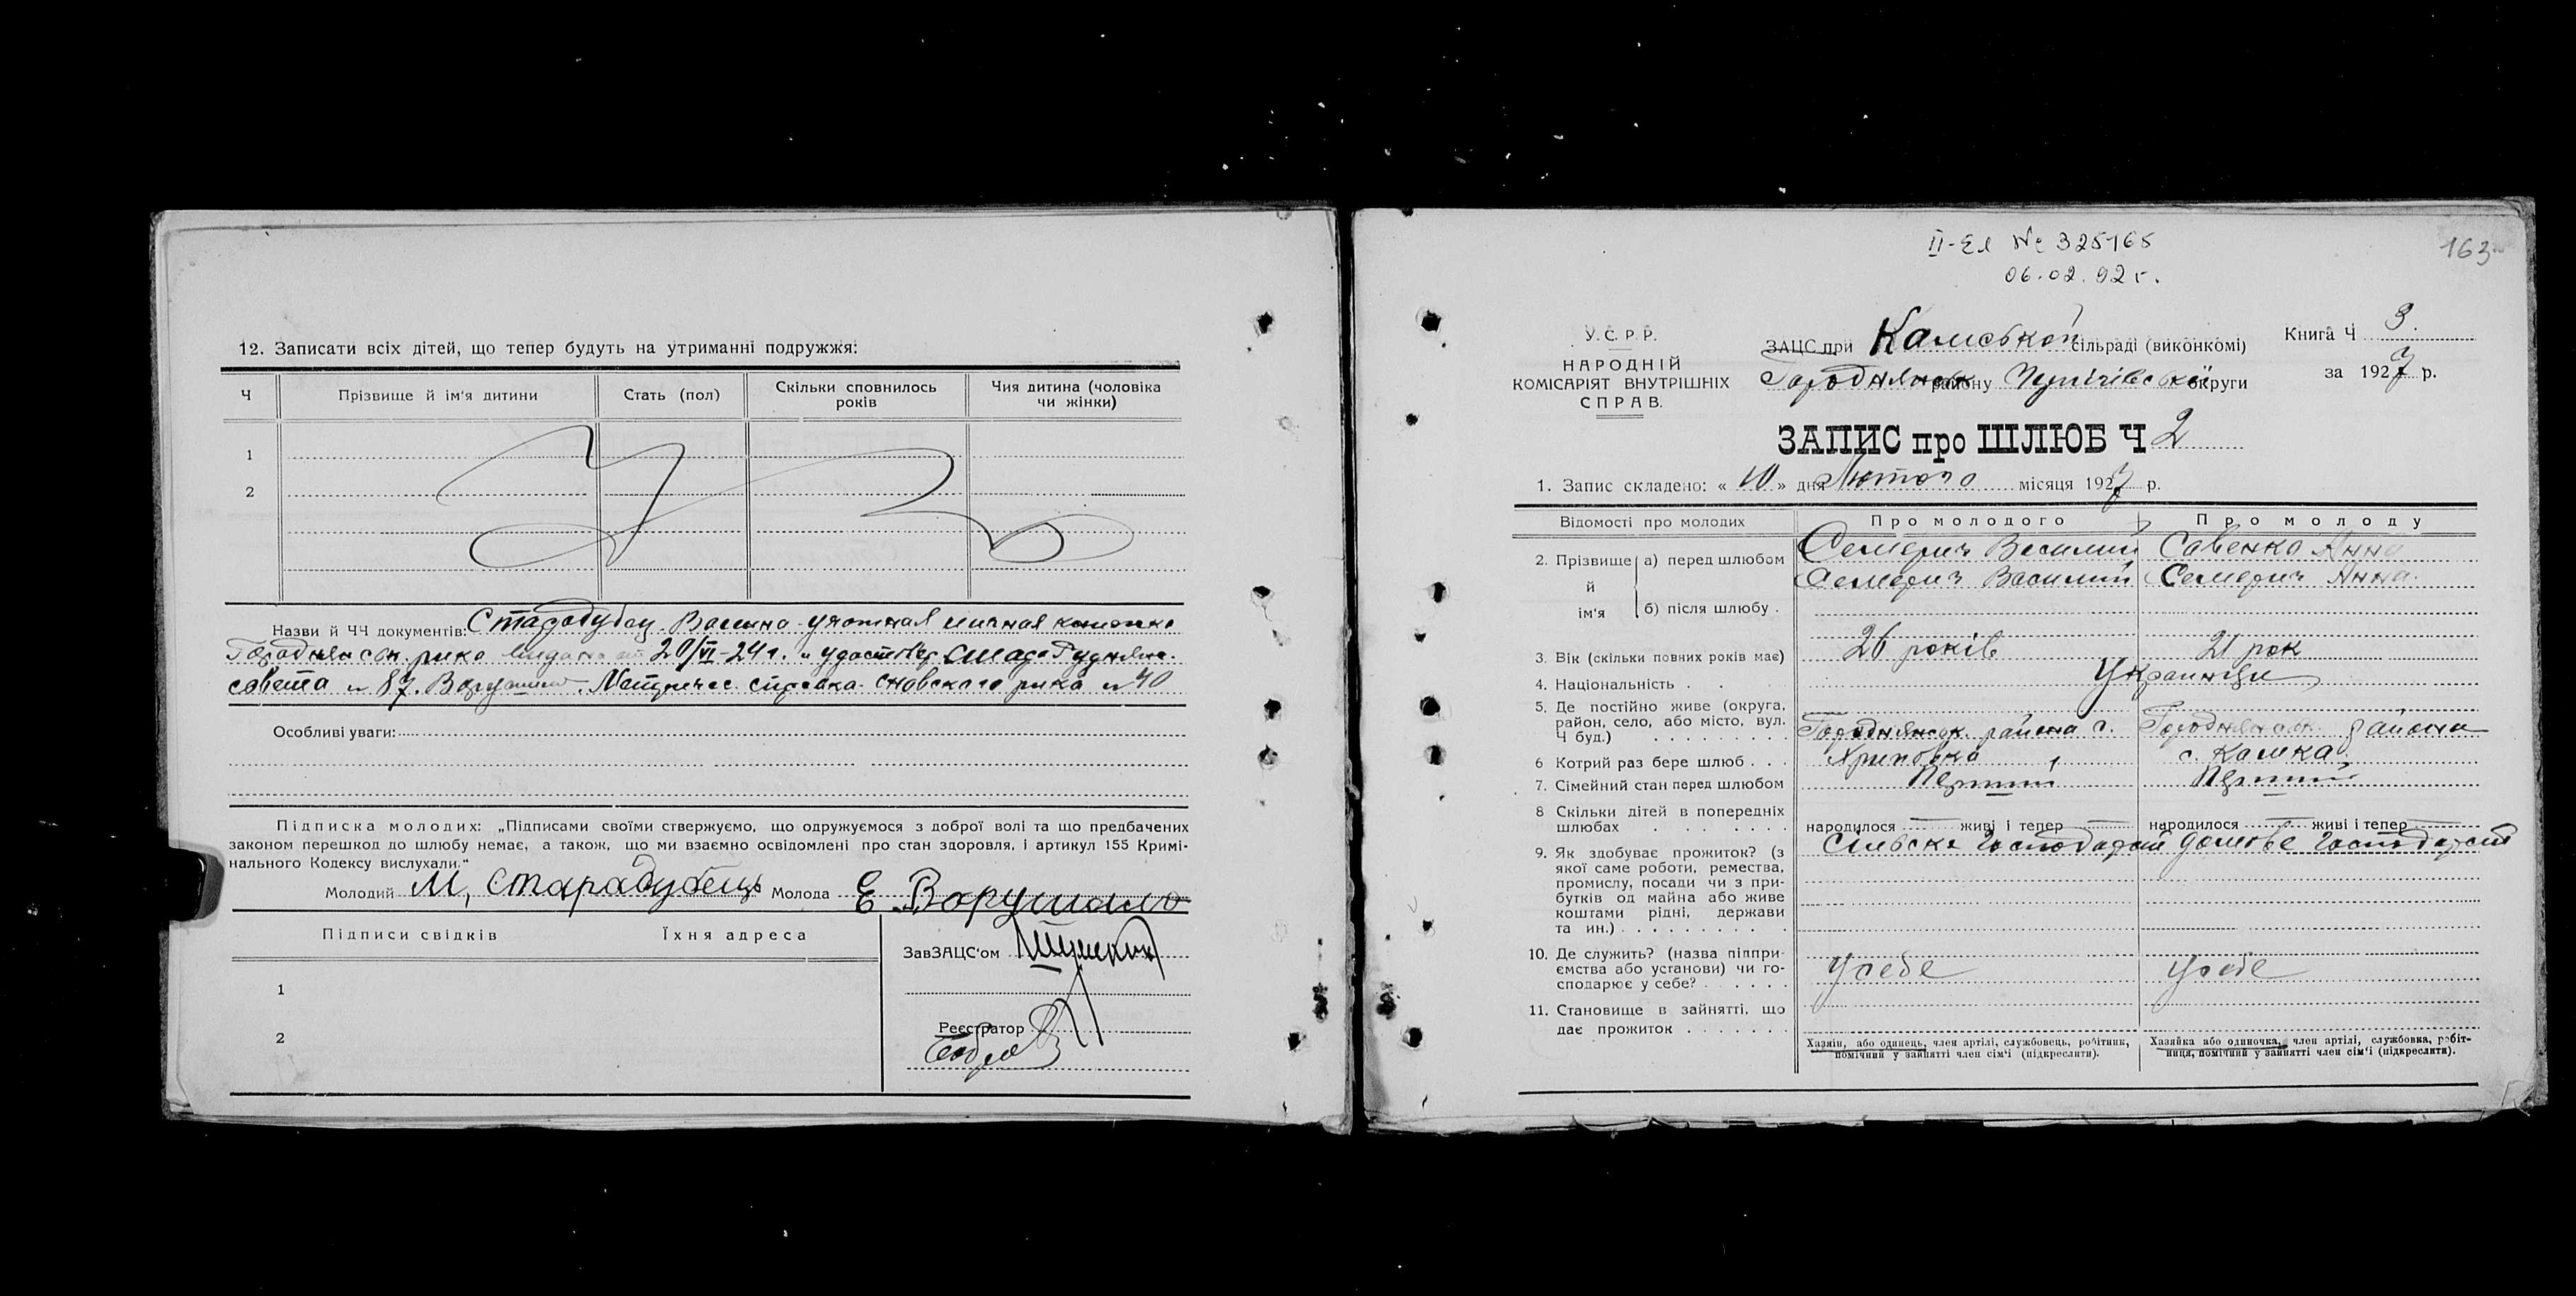 12. Записати всіх дітей, що тепер будуть на утриманні подружжя:
Ч Прізвище й ім'я дитини Стать (пол) Скільки сповнилось років Чия дитина (чоловіка чи жінки)
1
2
Назви й ЧЧ документів: Стародубец личная
20/VI-24 г.
совета № 87. справка Сновского рика № 40
Особливі уваги:
Підписка молодих: „Підписами своїми стверджуємо, що одружуємося з доброї волі та що предбачених
законом перешкод до шлюбу немає, а також, що ми взаємно освідомлені про стан здоровля, і артикул 155 Кримі-
нального Кодексу вислухали."
Молодий М, Старадубець Молода Е Ворушило
Підписи свідків Їхня адреса
ЗавЗАЦС'ом
1
Реєстратор
2
II-ЕЛ № 325165
163
06.02.92 г.
У.С.Р.Р.
НАРОДНІЙ
КОМІСАРІЯТ ВНУТРІШНІХ
СПРАВ.
ЗАЦС при Камської сільраді (виконкомі)
Городнянськ району Чернігівської округи
Книга Ч 3.
за 1927 р.
ЗАПИС про ШЛЮБ Ч 2
1. Запис складено: « 10 » дня Лютого місяця 1927 р.
Відомості про молодих Про молодого Про молоду
2. Прізвище й ім'я а) перед шлюбом Василий Савенко Анна
б) після шлюбу . Василий Анна
3. Вік (скільки повних років має) 26 років 21 рок
4. Національність . . Украинци
5. Де постійно живе (округа,
район, село, або місто, вул.
Ч буд.) Городнянск. района с. Хриповка Городнянск. района с. Камка
6 Котрий раз бере шлюб . . . Перший Перший
7. Сімейний стан перед шлюбом
8 Скільки дітей в попередніх
шлюбах народилося живі і тепер народилося живі і тепер
9. Як здобуває прожиток? (з
якої саме роботи, ремества,
промислу, посади чи з при-
бутків од майна або живе
коштами рідні, держави
та ин.) Сільске Господарст домове Господарст
10. Де служить? (назва піппри-
ємства або установи) чи го-
сподарює у себе? У себе У себе
11. Становище в зайнятті, що
дає прожиток
Хазяїн, або одинець, член артілі, службовець, робітник,
помічний у зайнятті член сім'ї (підкреслити).
Хазяйка або одиночка, член артілі, службовка, робіт-
ниця, помічний у зайнятті член сім'ї (підкреслити).